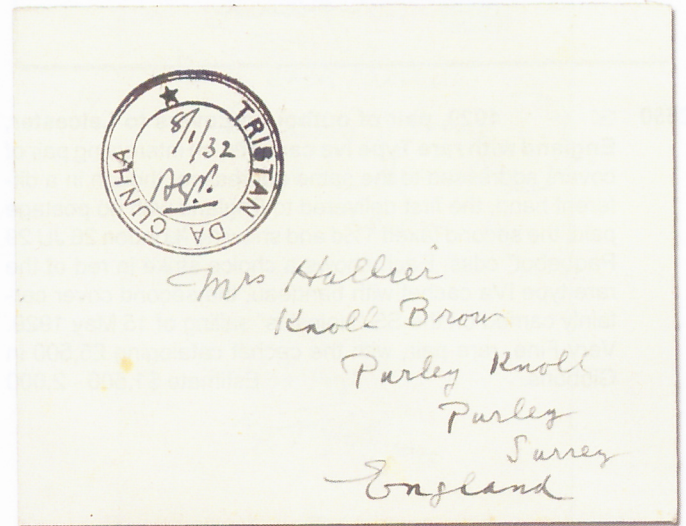 TRISTAN DA CUNHA
8/1/32
Mrs Hallier
Knoll Brow
Purley Knoll
Purley
Surrey
England